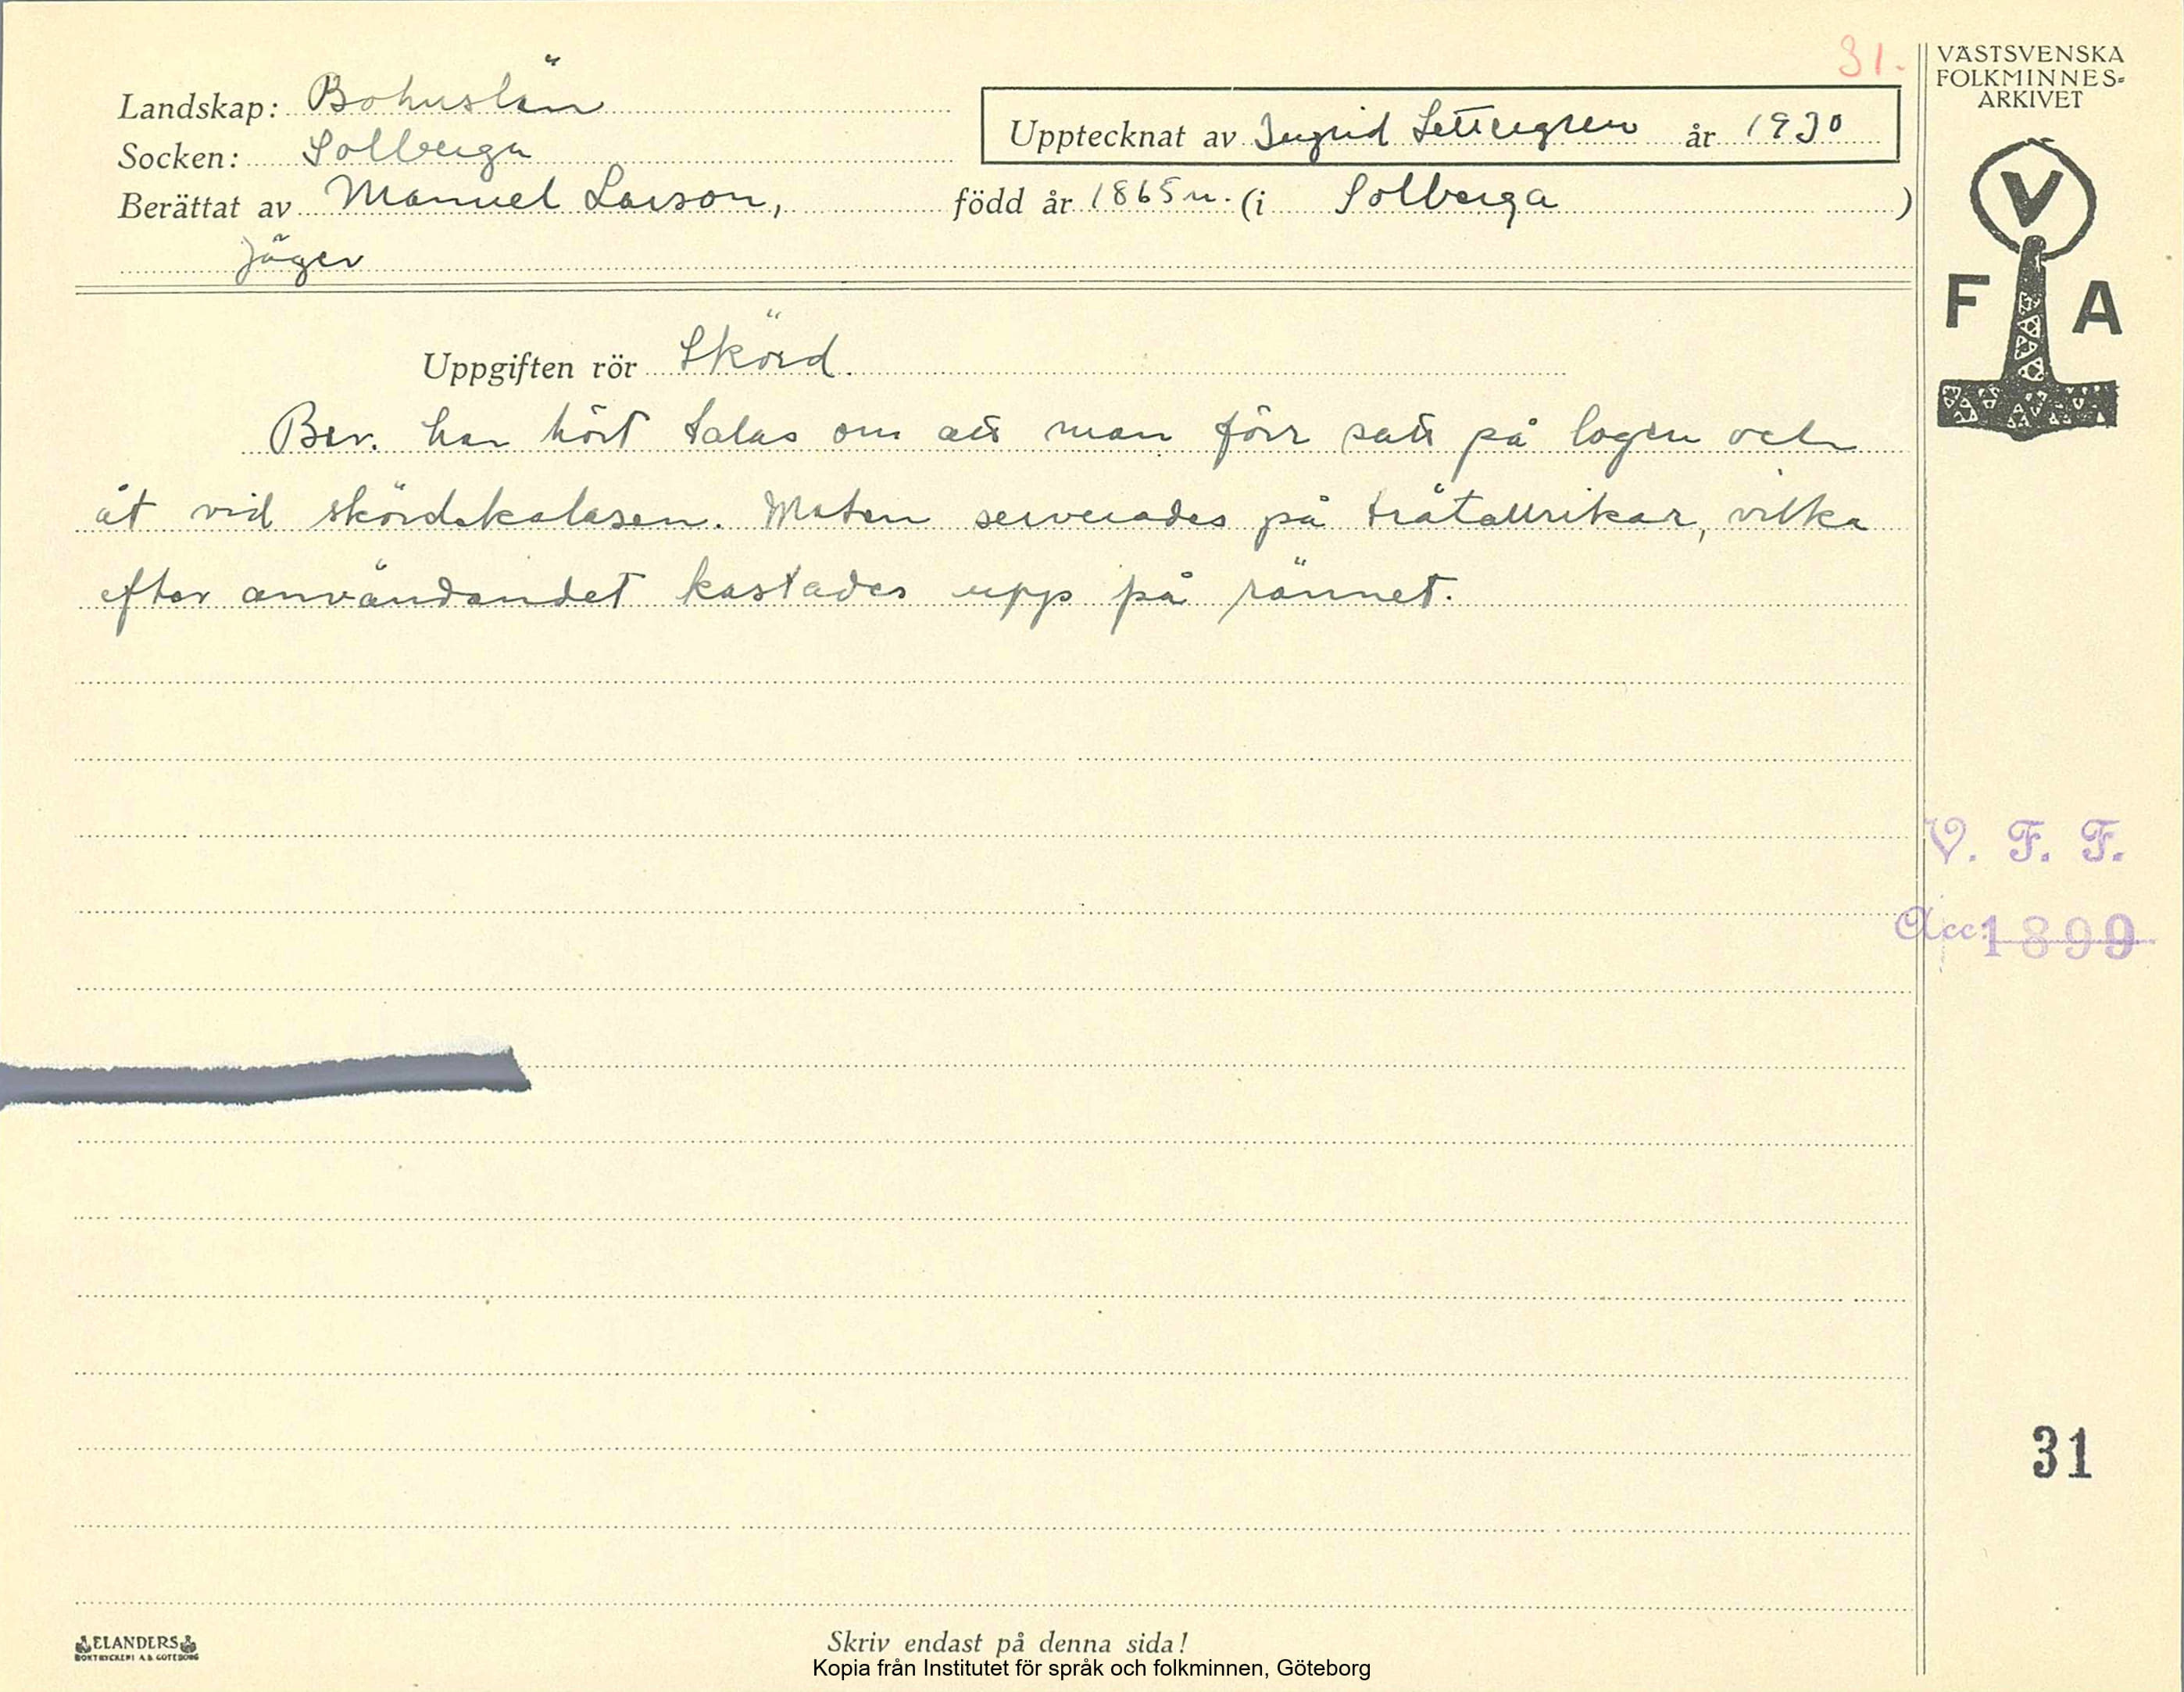 31.
VÄSTSVENSKA
FOLKMINNES-
ARKIVET
Landskap: Bohuslän
Upptecknat av Ingrid Settergren år 1930
Socken: Solberga
Berättat av Manuel Larson, född år 1865 (i Solberga)
Jäger
V
F A
Uppgiften rör Skörd.
Ber. har hört talas om att man förr satt på logen och
åt vid skördekalasen. Maten serverades på trätallrikar, vilka
efter användandet kastades upp på rännet.
V. F. F.
Acc: 1899
31
ELANDERS
BOKTRYCKERI A.B. GÖTEBORG
Skriv endast på denna sida!
Kopia från Institutet för språk och folkminnen, Göteborg